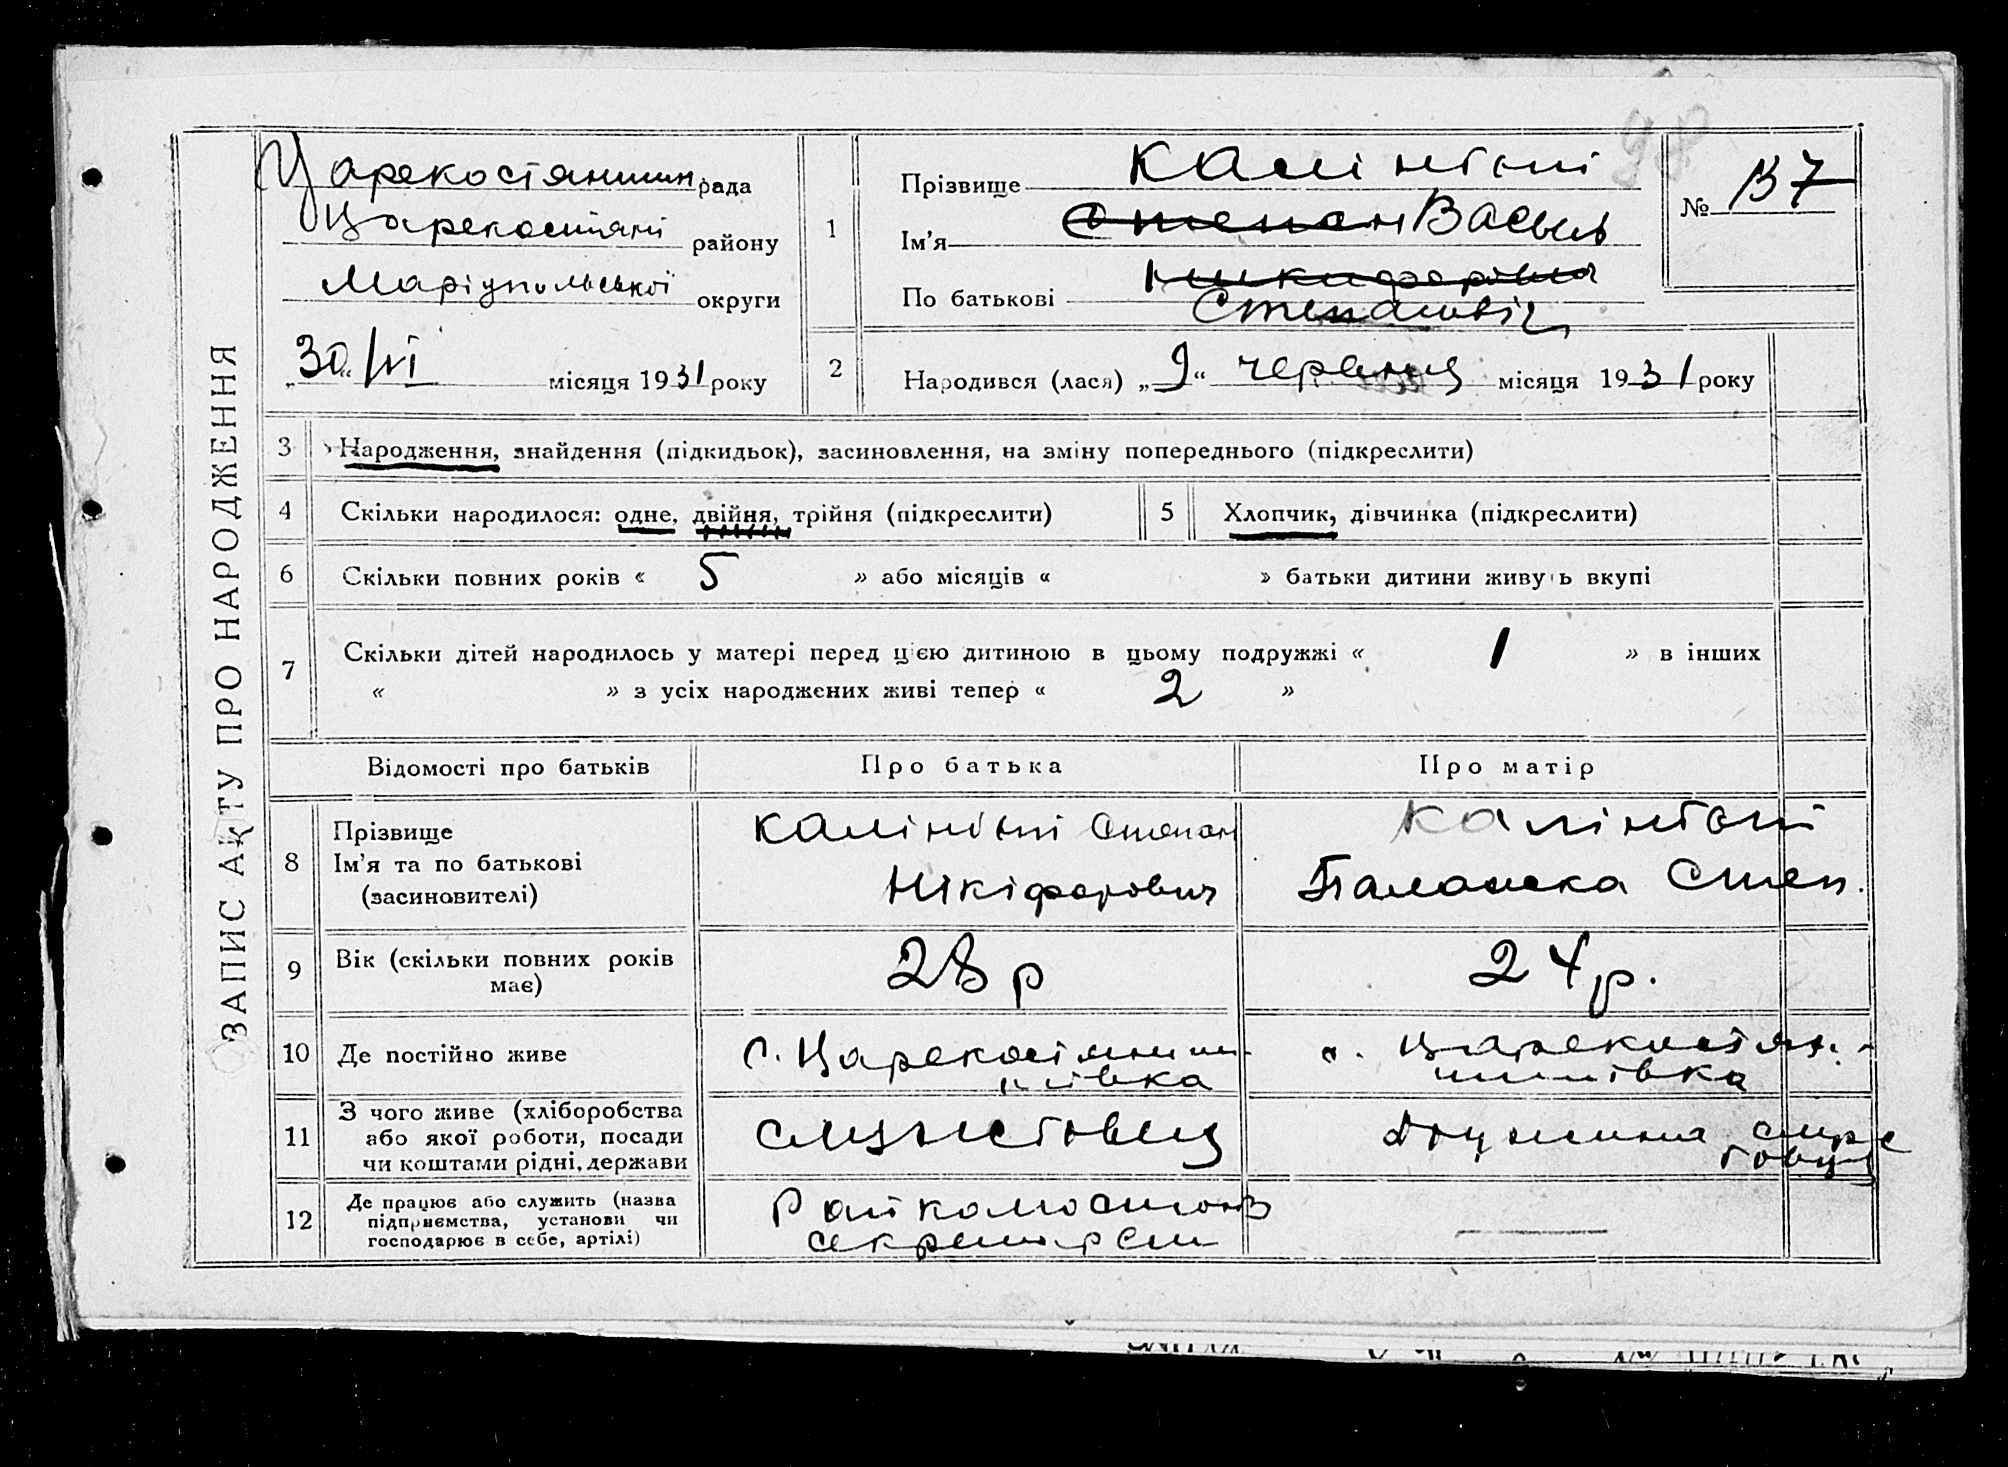 ЗАПИС АКТУ ПРО НАРОДЖЕННЯ
98
Царекостянтин. рада
Царекостянт районy
Маріупольської округи
„30“ /VI місяця 1931 року
1
Прізвище Калінтьні
Ім’я Степан Васыль
По батькові Никифорівич
Степановіч
№ 137
2
Народився (лася) „9“ червня місяця 1931 року
3 Народження, знайдення (підкидьок), засиновлення, на зміну попереднього (підкреслити)
4 Скільки народилося: одне, двійня, трійня (підкреслити)
5 Хлопчик, дівчинка (підкреслити)
6 Скільки повних років « 5 » або місяців « » батьки дитини живуть вкупі
7 Скільки дітей народилось у матері перед цією дитиною в цьому подружжі « 1 » в інших
« » з усіх народжених живі тепер « 2 »
Відомості про батьків Про батька Про матір
8 Прізвище
Ім’я та по батькові
(засиновителі)
Степан
Нікіфорович
Палажка Степ.
9 Вік (скільки повних років
має)
28 р
24 р.
10 Де постійно живе
с. Царекостянтин-
івка
с. Царекостян-
тинівка
11 З чого живе (хліборобства
або якої роботи, посади
чи коштами рідні, держави
службовець
Дружина служ
бовця
12 Де працює або служить (назва
підприємства, установи чи
господарює в себе, артілі)
секретарем